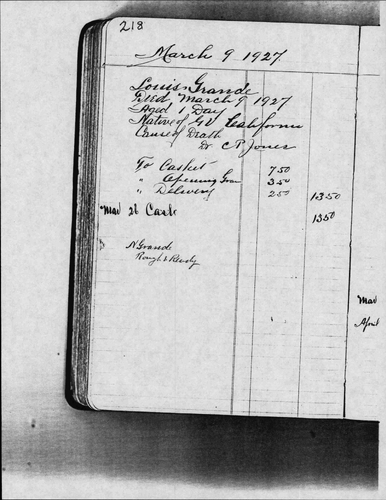 218
March 9 1927
Louis Grande
Died March 9 1927
Aged 1 Day
Native of GV California
Cause of Death
Dr CP Jones
To Casket 7 50
" Opening Grav 3 50
" Delivery 2 50 13 50
Mar 26 Cash 13 50
N Grande
Rough & Ready
Mar
April